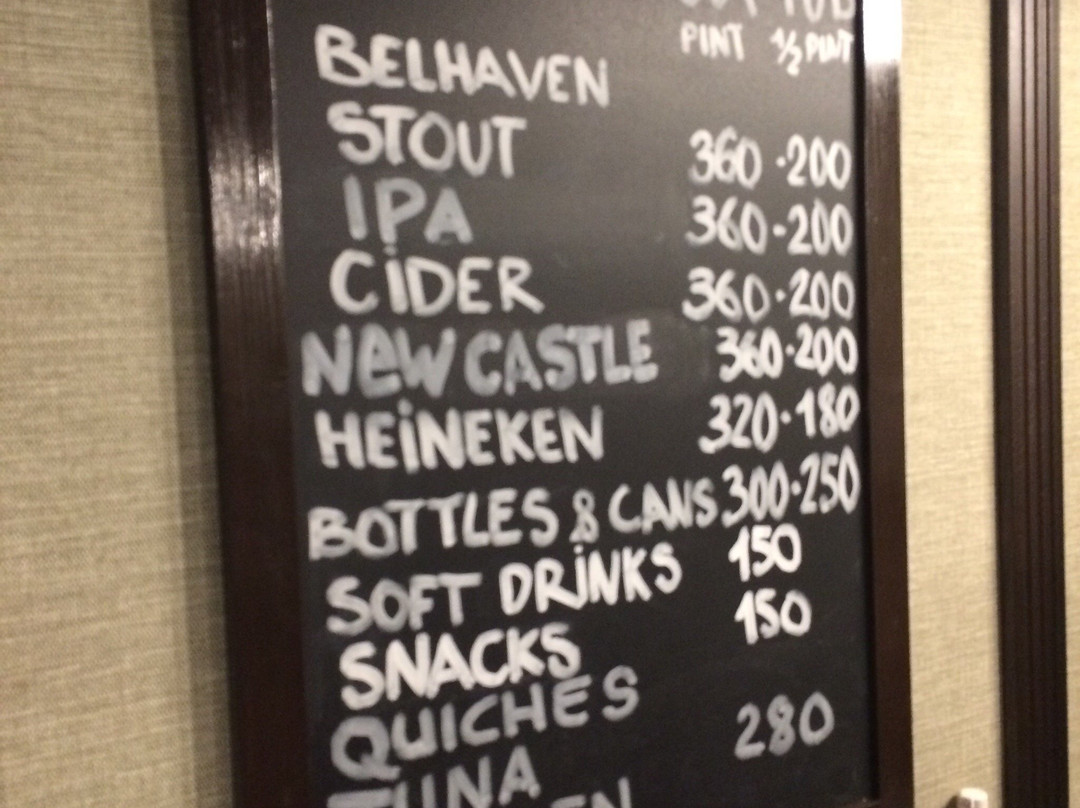 PINT ½ PINT
BELHAVEN
STOUT 360 · 200
IPA 360 · 200
CiDER 360 · 200
NeW CASTLE 360 · 200
HEiNEKEN 320 · 180
BOTTLES & CANS 300 · 250
SOFT DRiNKS 150
SNACKS 150
QUICHES
TUNA 280